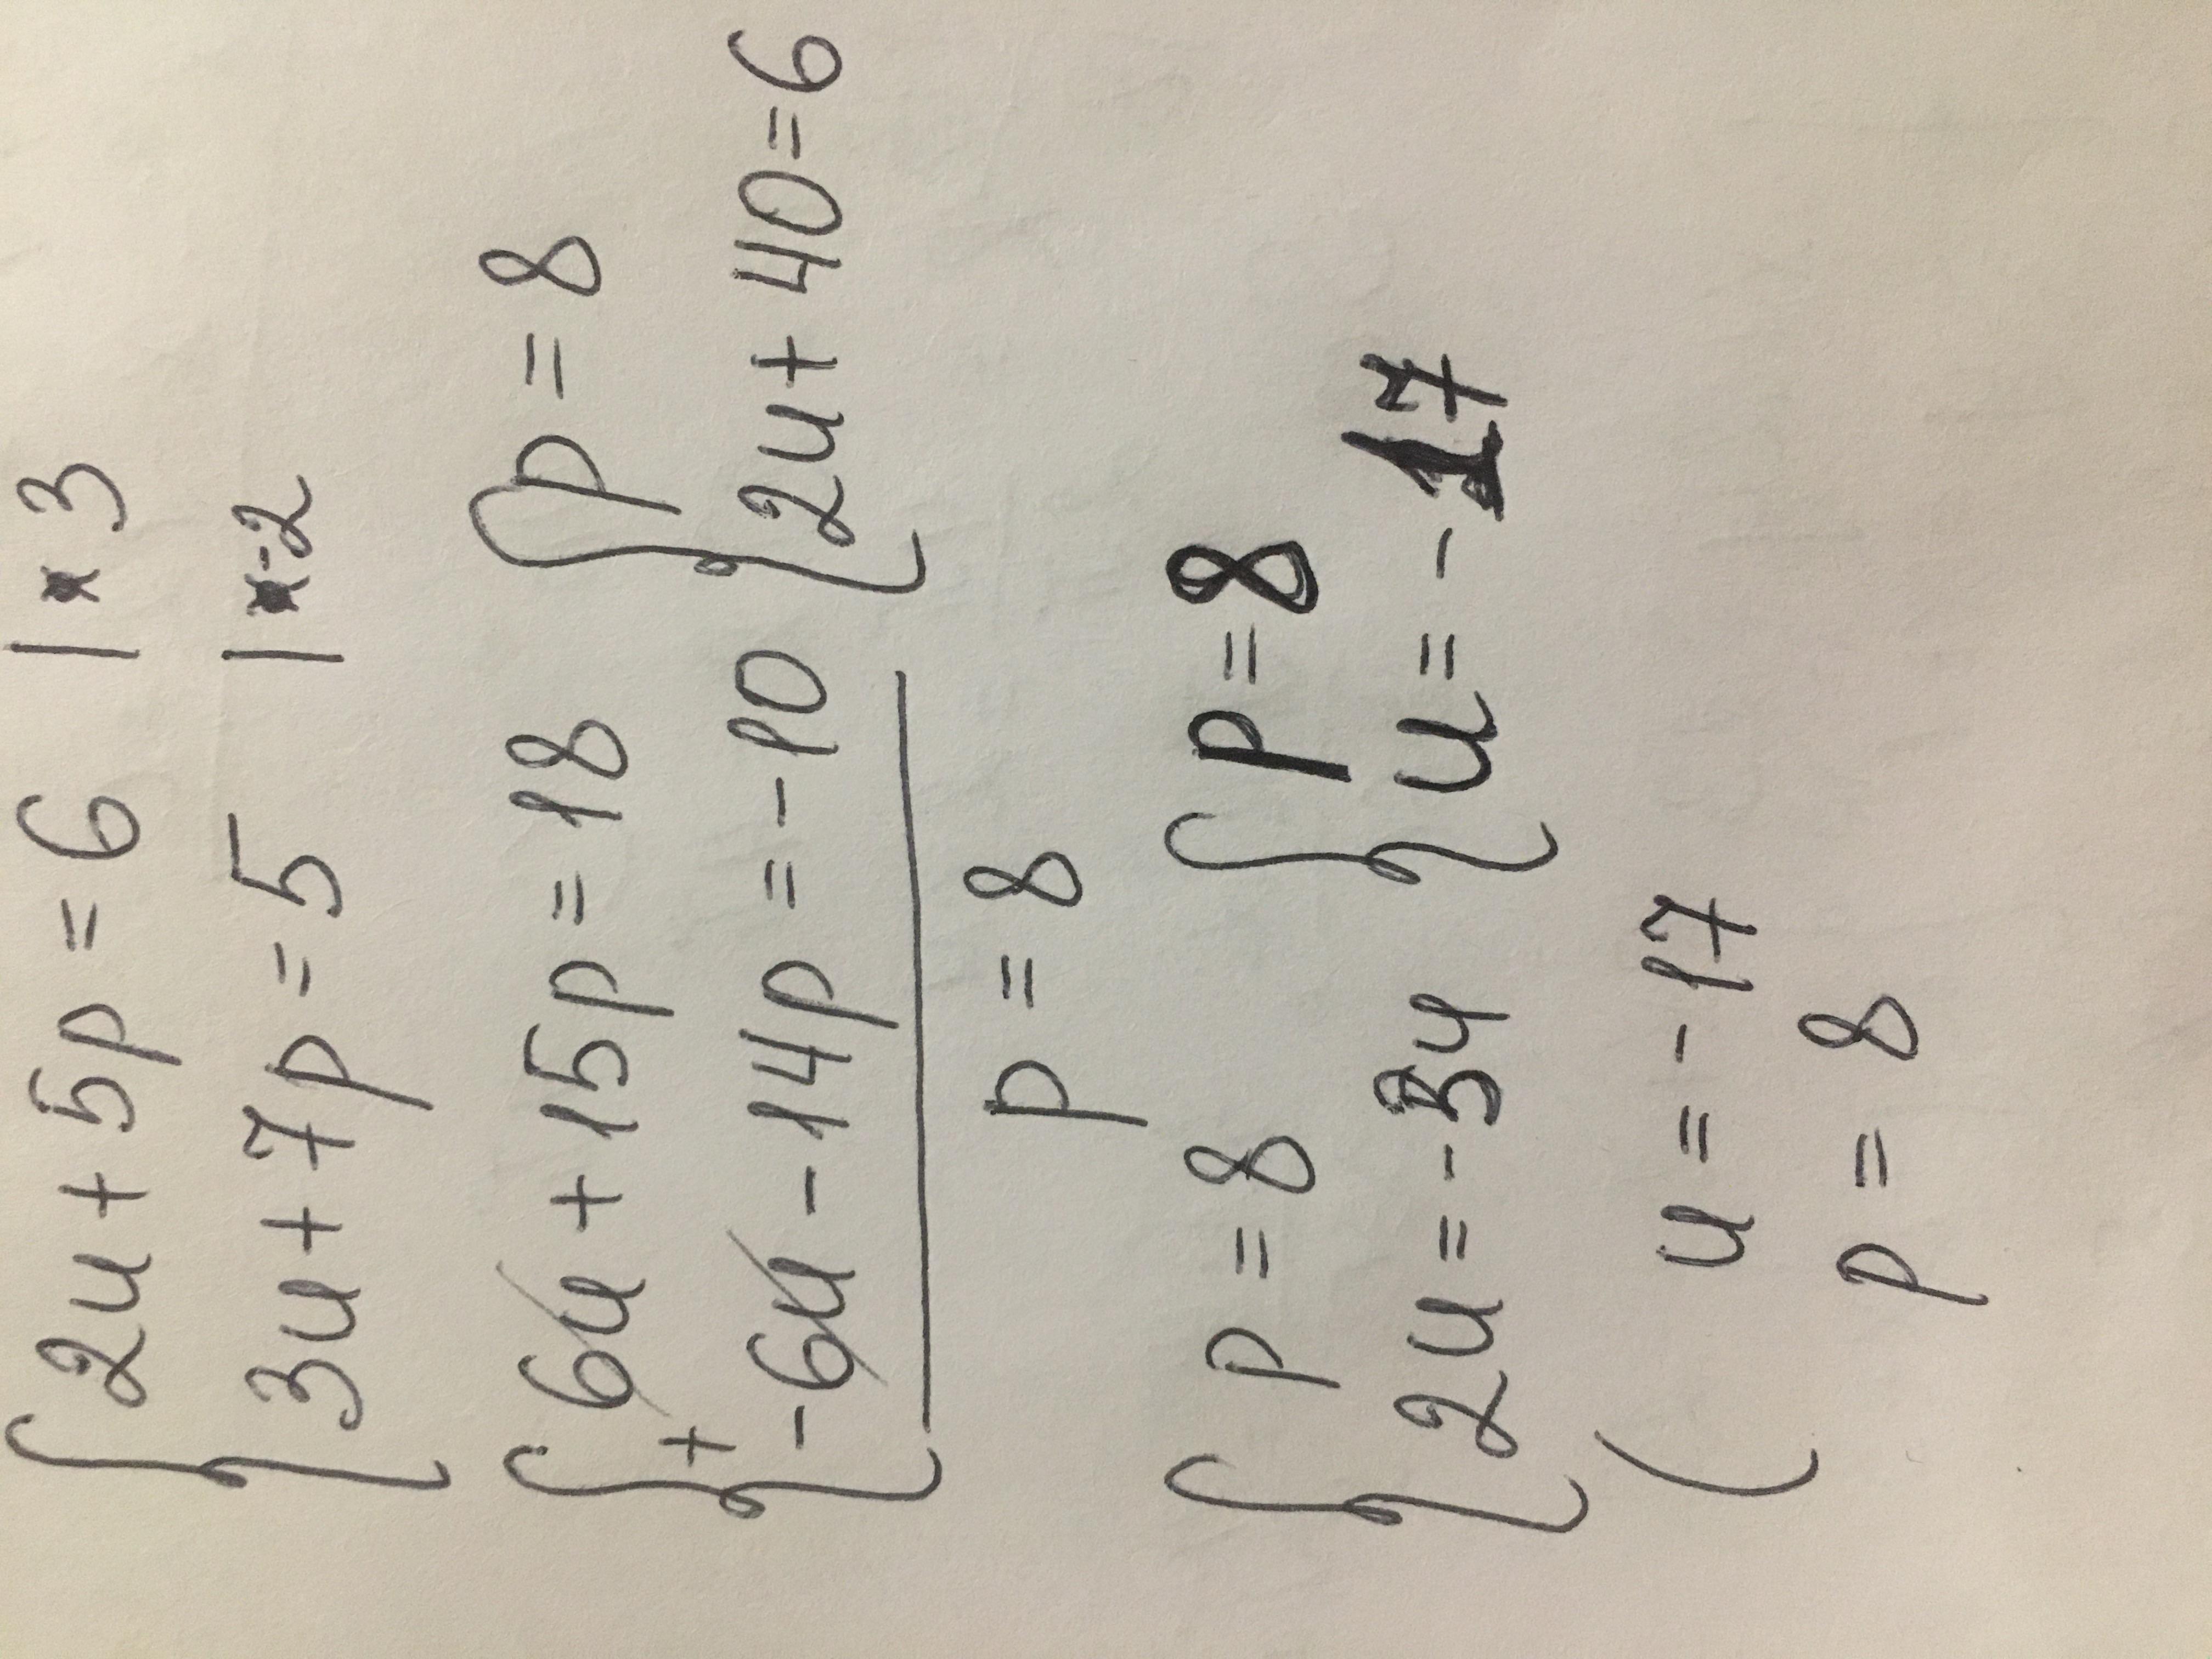 2u + 5p = 6 | × 3
3u + 7p = 5 | × -2
6u + 15p = 18
+
-6u - 14p = -10
p = 8
p = 8
2u + 40 = 6
p = 8
2u = -34
p = 8
u = -17
u = -17
p = 8